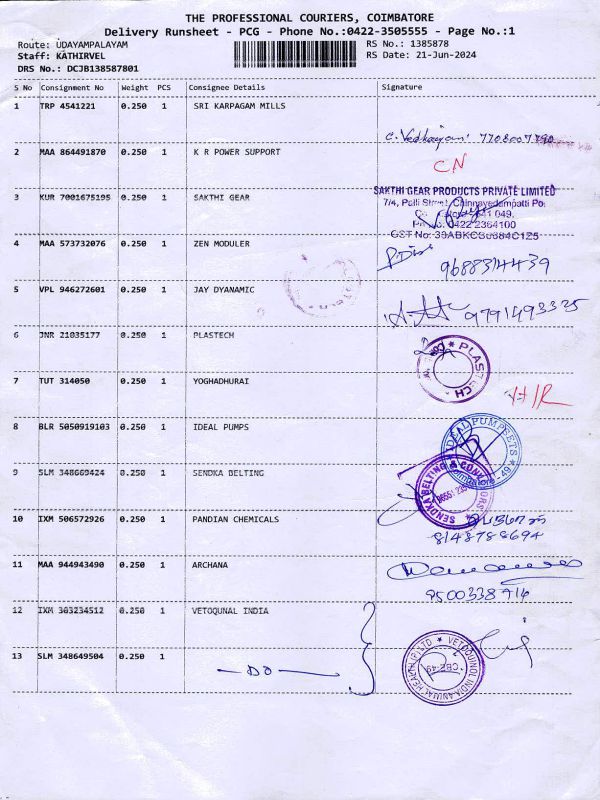 THE PROFESSIONAL COURIERS, COIMBATORE
Delivery Runsheet - PCG - Phone No.:0422-3505555 - Page No.:1
Route: UDAYAMPALAYAM RS No.: 1385878
Staff: KATHIRVEL RS Date: 21-Jun-2024
DRS No.: DCJB138587801
S No Consignment No Weight PCS Consignee Details Signature
1 TRP 4541221 0.250 1 SRI KARPAGAM MILLS
7708007790
2 MAA 864491870 0.250 1 K R POWER SUPPORT CN
3 KUR 7001675195 0.250 1 SAKTHI GEAR
SAKTHI GEAR PRODUCTS PRIVATE LIMITED
7/4, Palli Street, Chinnavedampatti Po
641 049.
0422 2364100
GST No:
4 MAA 573732076 0.250 1 ZEN MODULER
9688314439
5 VPL 946272601 0.250 1 JAY DYANAMIC 9791493325
6 JNR 21035177 0.250 1 PLASTECH
PLASTECH
7 TUT 314050 0.250 1 YOGHADHURAI
8 BLR 5050919103 0.250 1 IDEAL PUMPS
IDEAL PUMPSETS
9 SLM 348669424 0.250 1 SENDKA BELTING
SENDKA BELTING &
10 IXM 506572926 0.250 1 PANDIAN CHEMICALS
8148788694
11 MAA 944943490 0.250 1 ARCHANA
9500338714
12 IXM 303234512 0.250 1 VETOQUNAL INDIA
13 SLM 348649504 0.250 1 — DO —
VETOQUINOL INDIA ANIMAL HEALTH (P) LTD
CBE-49